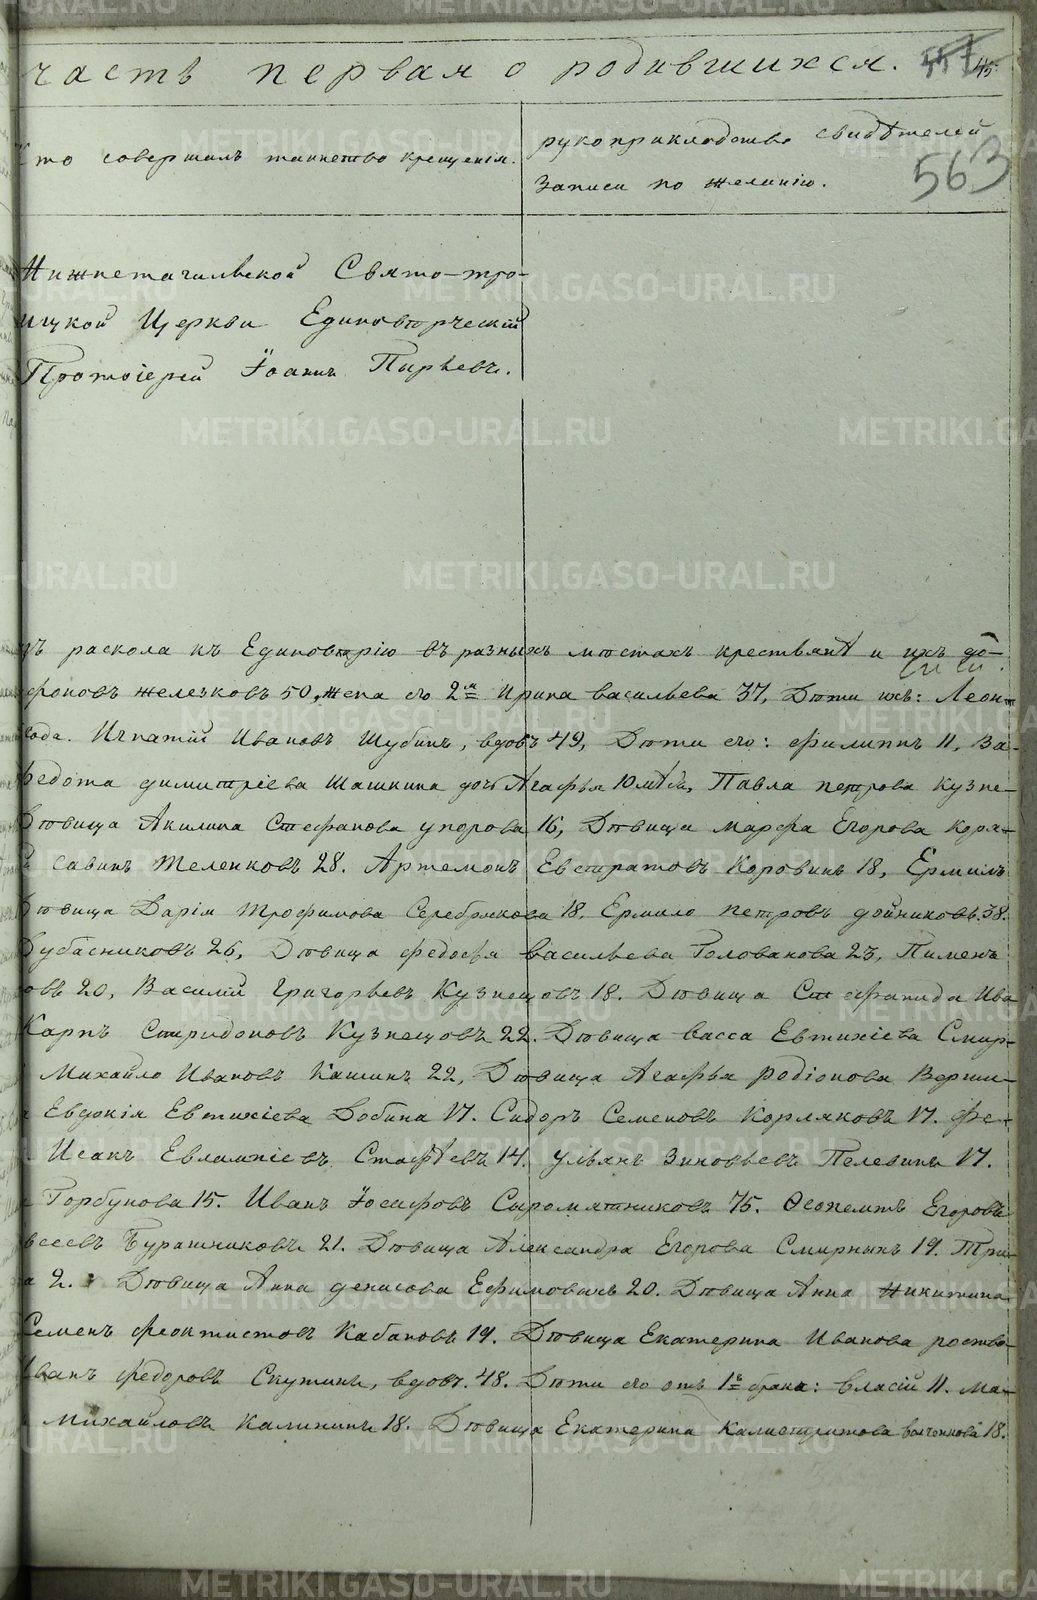 часть первая о родившихся. 45.
563
Кто совершилъ таинство крещенія.
рукоприкладство свидѣтелей
записи по желанію.
Нижнетагильской Свято-тро-
ицкой Церкви Единовѣрческій
Протоіерей Іоаннъ Пырьевъ.
раскола къ Единовѣрію въ разныхъ мѣстахъ крестьянѣ и ихъ
Железковъ 50, жена его 2я Ирина васильева 37, Дѣти ихъ: Леон-
года. Игнатій Ивановъ Шубинъ, вдовъ 49, Дѣти его: филиппъ 11, Ва-
федота димитріева Шашкина дочь Агафья 10 мѣся, Павла петрова Кузне-
Дѣвица Акилина Стефанова упорова 16, Дѣвица марфа Егорова Коря-
савинъ Теленковъ 28. Артемонъ Евстратовъ Коровинъ 18, Ермилъ
Дѣвица Дарія Трофимова Серебрякова 18. Ермило петровъ дойниковъ 38.
Дубасниковъ 26, Дѣвица федосья васильева Голованова 23, Пименъ
овъ 20, Василій Григорьевъ Кузнецовъ 18. Дѣвица Стефанида Ива
Карпъ Спиридоновъ Кузнецовъ 22. Дѣвица васса Евтихіева Смир-
Михайло Ивановъ Кашинъ 22, Дѣвица Агафья родіонова Верши-
Евдокія Евтихіева Бобина 17. Сидоръ Семеновъ Корляковъ 17. фе-
Исакъ Евлампіевъ Стафѣевъ 14. ульянъ Зиновьевъ Пелевинъ 17.
Горбунова 15. Иванъ Іосифовъ Сыромятниковъ 75. Ѳеопемптъ Егоровъ
Бурашниковъ 21. Дѣвица Александра Егорова Смирныхъ 19. Три-
2. Дѣвица Анна денисова Ефимовыхъ 20. Дѣвица Анна Никитина
Семенъ феоктистовъ Кабановъ 19. Дѣвица Екатерина Иванова
Иванъ федоровъ Скутинъ, вдовъ. 48. Дѣти его отъ 1го брака: власій 11. Ма-
Михайловъ Калининъ 18. Дѣвица Екатерина Калистратова 18.
METRIKI.GASO-URAL.RU